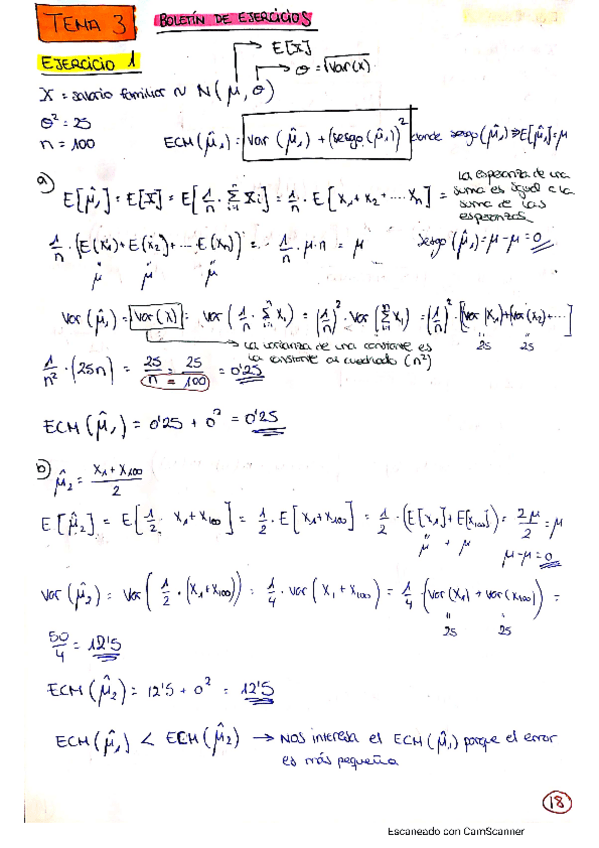 TEMA 3 BOLETÍN DE EJERCICIOS
EJERCICIO 1
→ E[X]
→ σ = √Var(x).
X = salario familiar ~ N(μ, σ)
σ² = 25
n = 100
ECM(μ̂₁) = Var(μ̂₁) + (sesgo(μ̂₁))² donde sesgo(μ̂₁) ⇒ E[μ̂₁] = μ
a)
E[μ̂₁] = E[X̄] = E[1/n · Σ Xi] = 1/n · E[X₁ + X₂ + ... Xn] =
la esperanza de una
suma es igual a la
suma de las
esperanzas
1/n · (E(x₁) + E(x₂) + ... E(xn)) = 1/n · μ · n = μ
sesgo(μ̂₁) = μ - μ = 0
μ μ μ
Var(μ̂₁) = Var(x̄) = Var(1/n · Σ Xi) = (1/n)² · Var(Σ Xi) = (1/n)² · [Var(X₁) + Var(X₂) + ...]
25 25
→ la varianza de una constante es
la constante al cuadrado (n²)
1/n² · (25n) = 25/n = 25/100 = 0'25
ECM(μ̂₁) = 0'25 + 0² = 0'25
b)
μ̂₂ = X₁ + X₁₀₀ / 2
E[μ̂₂] = E[1/2 · X₁ + X₁₀₀] = 1/2 · E[X₁ + X₁₀₀] = 1/2 · (E[X₁] + E[X₁₀₀]) = 2μ/2 = μ
μ + μ
μ - μ = 0
Var(μ̂₂) = Var(1/2 · (X₁ + X₁₀₀)) = 1/4 · Var(X₁ + X₁₀₀) = 1/4 (Var(X₁) + Var(X₁₀₀)) =
25 25
50/4 = 12'5
ECM(μ̂₂) = 12'5 + 0² = 12'5
ECM(μ̂₁) < ECM(μ̂₂) → Nos interesa el ECM(μ̂₁) porque el error
es más pequeño
18
Escaneado con CamScanner